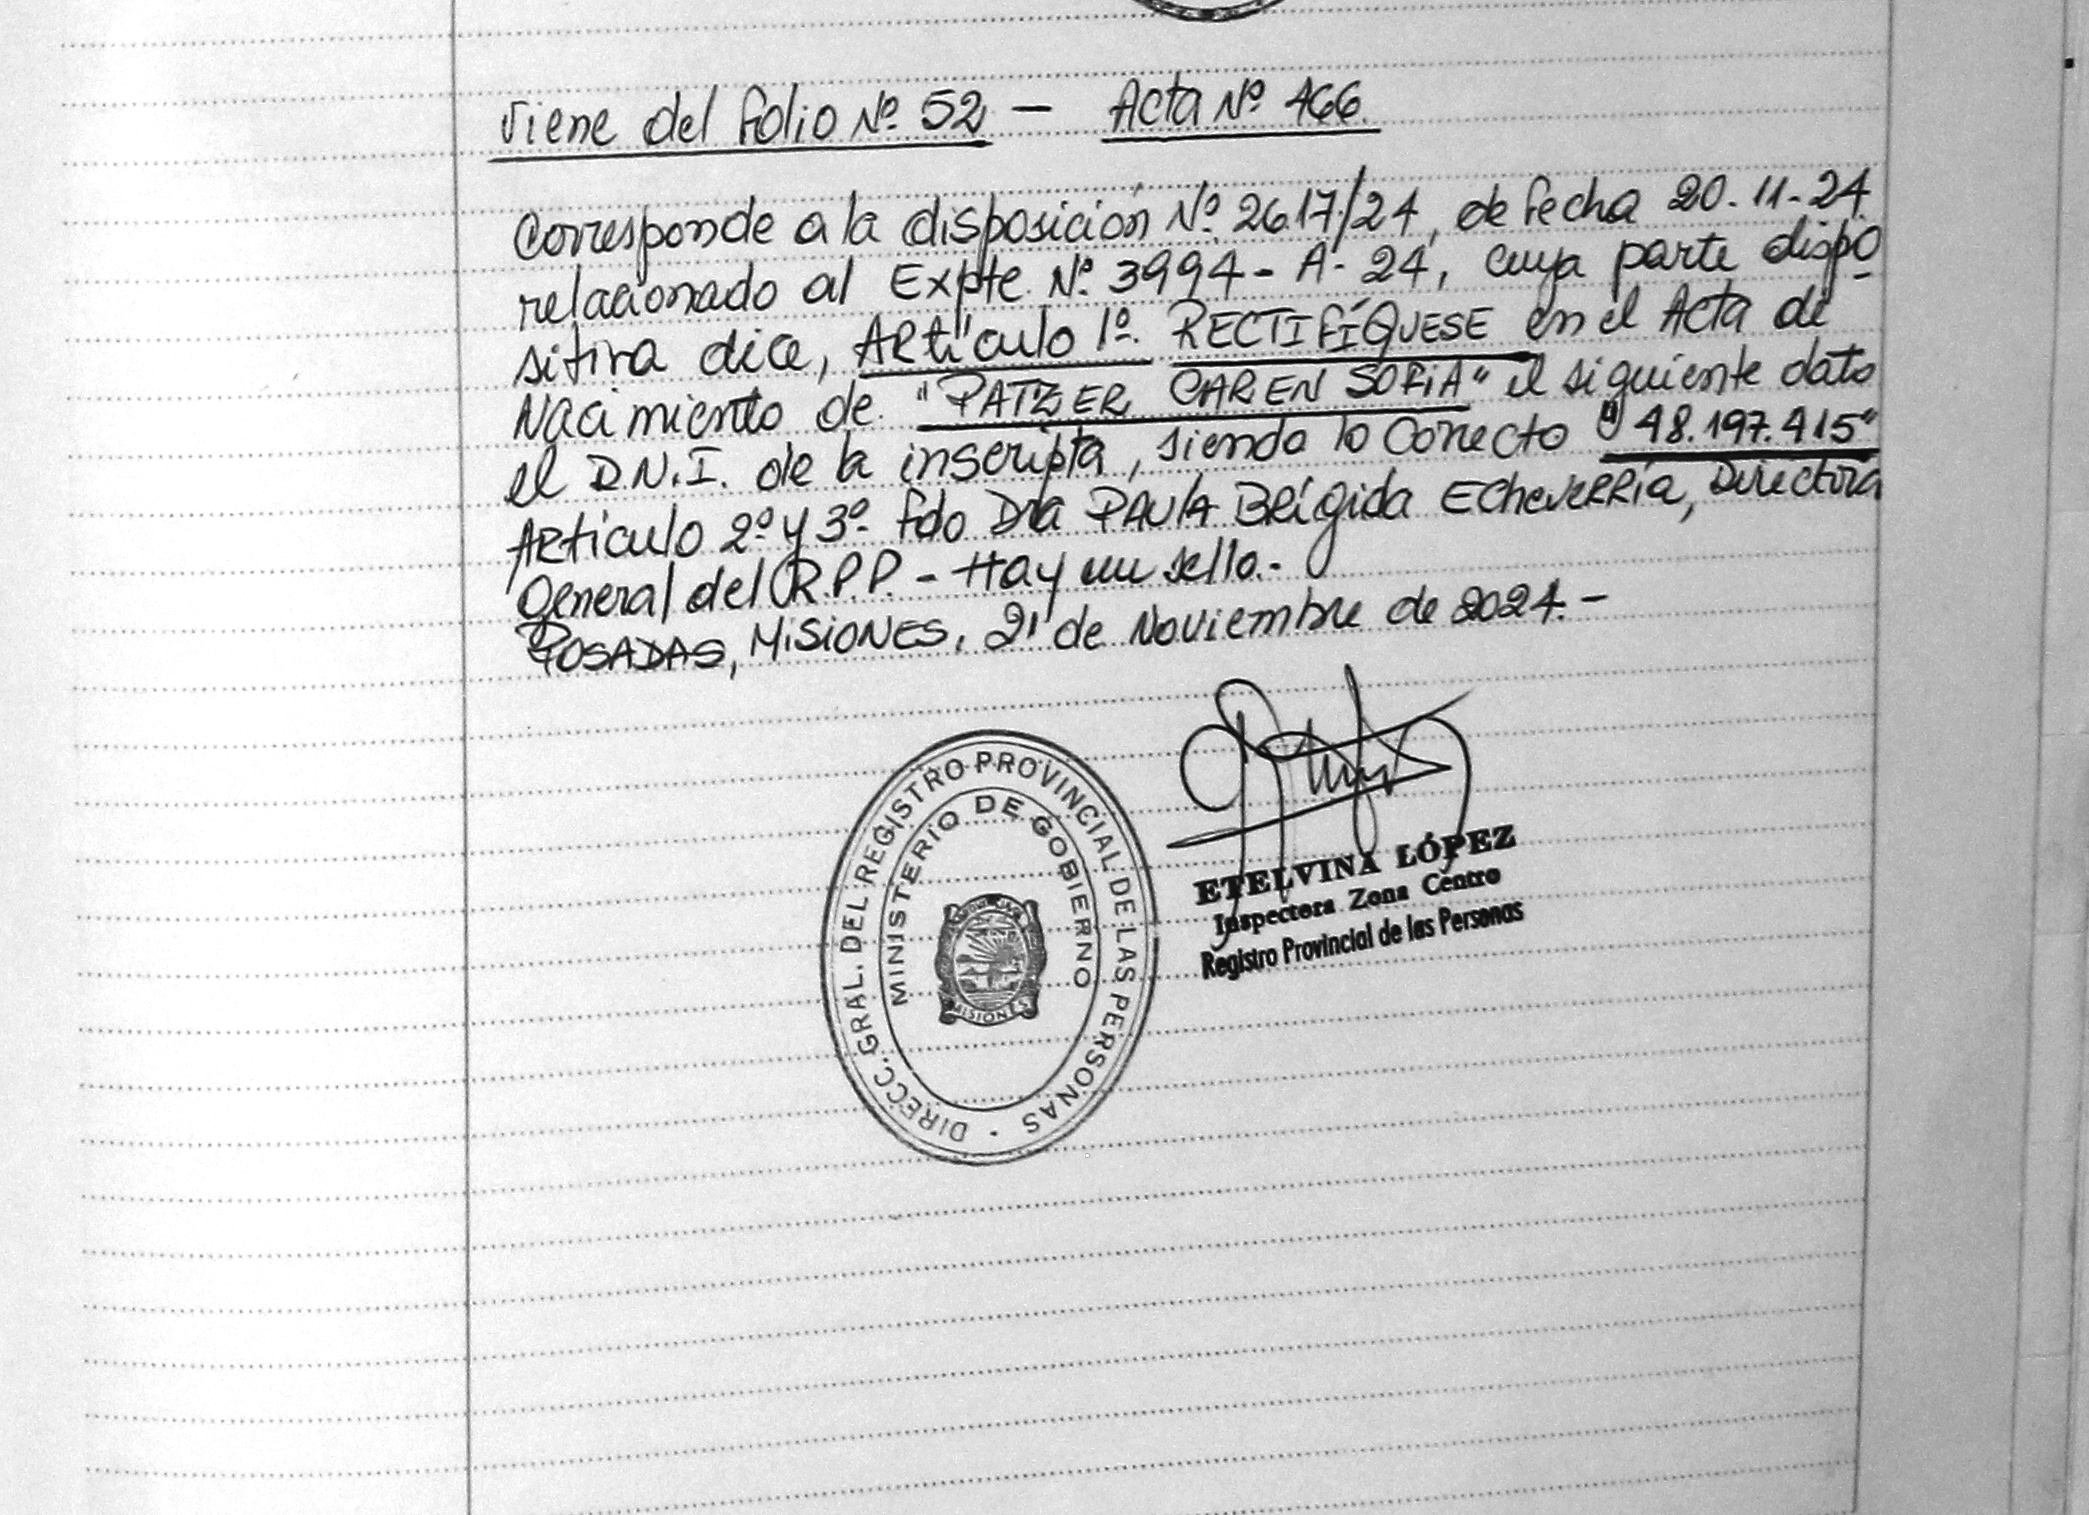 Viene del folio Nº 52 - Acta Nº 466.
Corresponde a la disposición Nº 2617/24, de fecha 20-11-24
relacionado al Expte Nº 3994- A- 24, cuya parte dispo
sitiva dice, ARtículo 1º. RECTIFÍQUESE en el Acta de
Nacimiento de "PATZER CAREN SOFIA" el siguiente dato
el D.N.I. de la inscripta, siendo lo Correcto "48.197.415"
ARticulo 2º y 3º- fdo Dra PAULA BRígida EcheveRRía, Directora
General del R.P.P. - Hay un sello.-
POSADAS, MISIONES, 21 de Noviembre de 2024.-
DIRECC. GRAL. DEL REGISTRO PROVINCIAL DE LAS PERSONAS ·
MINISTERIO DE GOBIERNO
MISIONES
ETELVINA LÓPEZ
Inspectora Zona Centro
Registro Provincial de las Personas